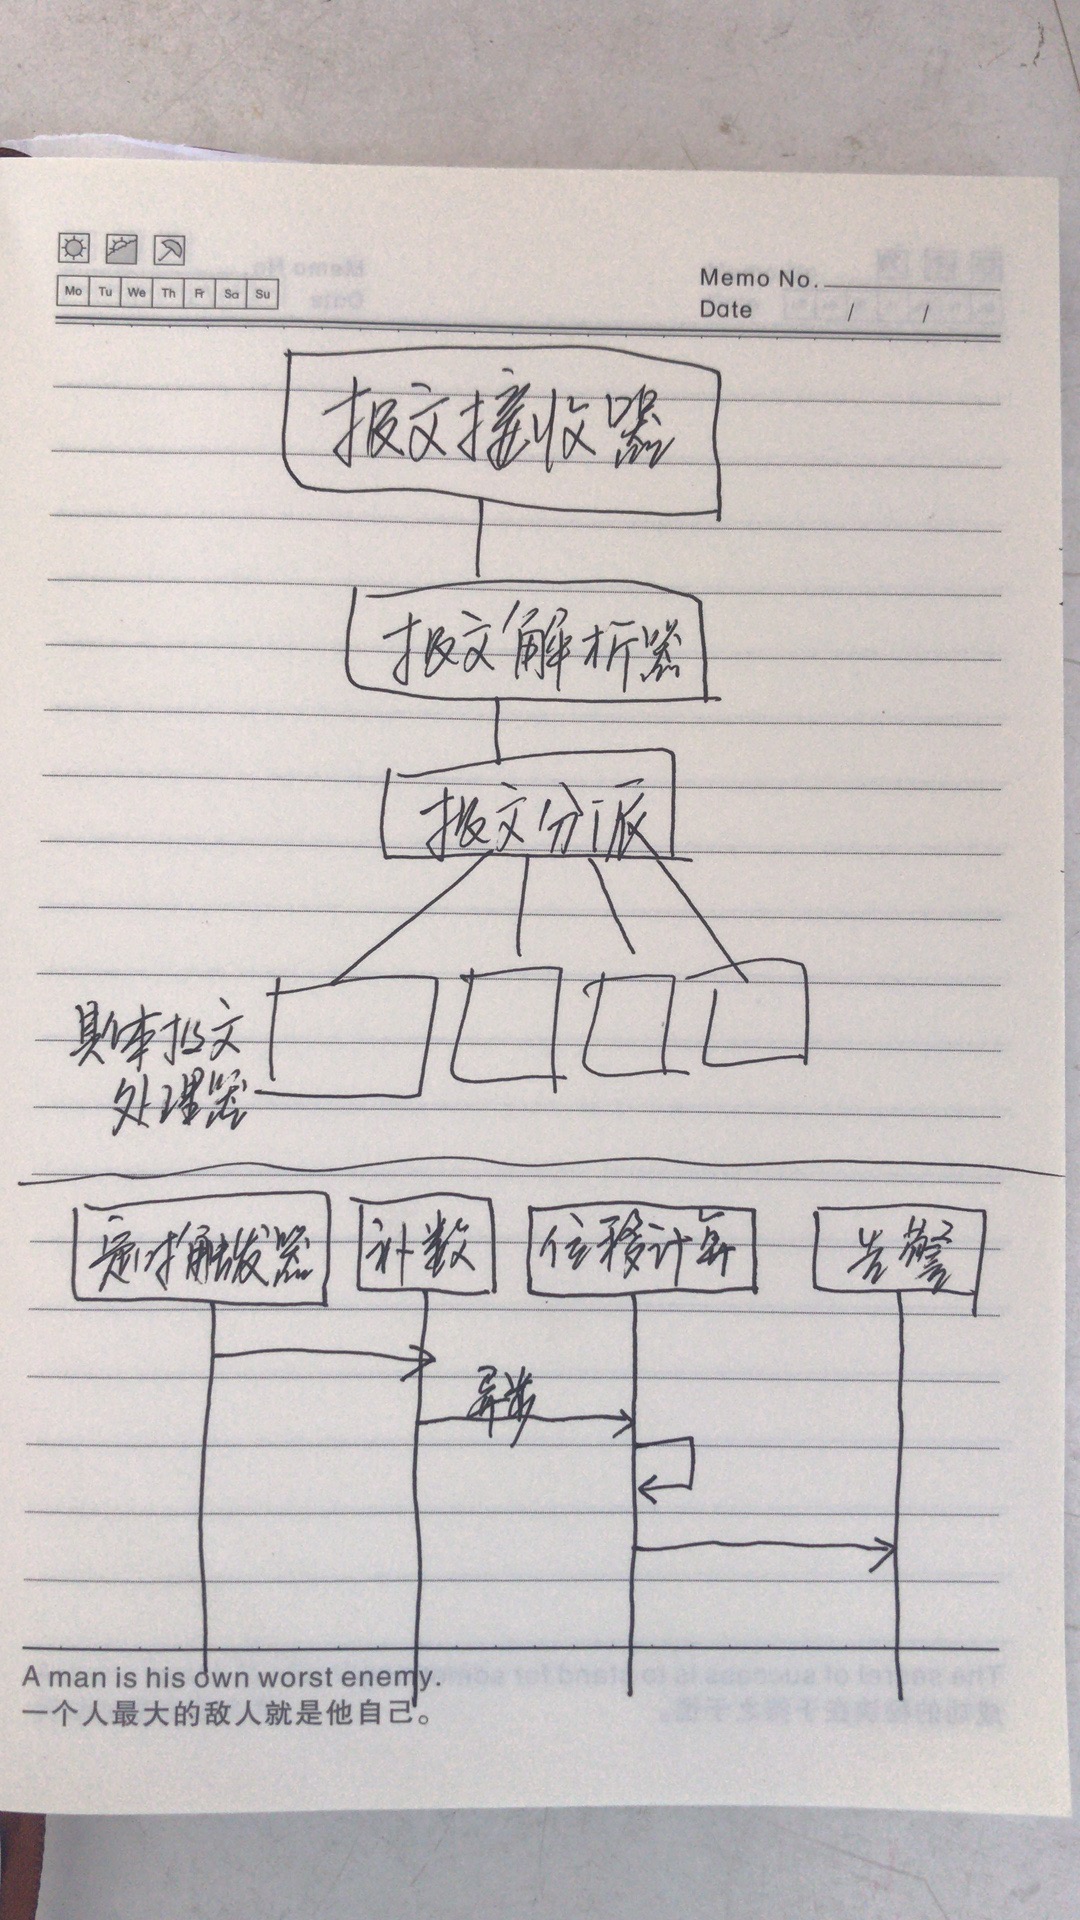 Memo No.
Mo Tu We Th Fr Sa Su
Date / /
报文接收器
报文解析器
报文分派
具体报文
处理器
定时触发器 补数 位移计算 告警
异步
A man is his own worst enemy.
一个人最大的敌人就是他自己。